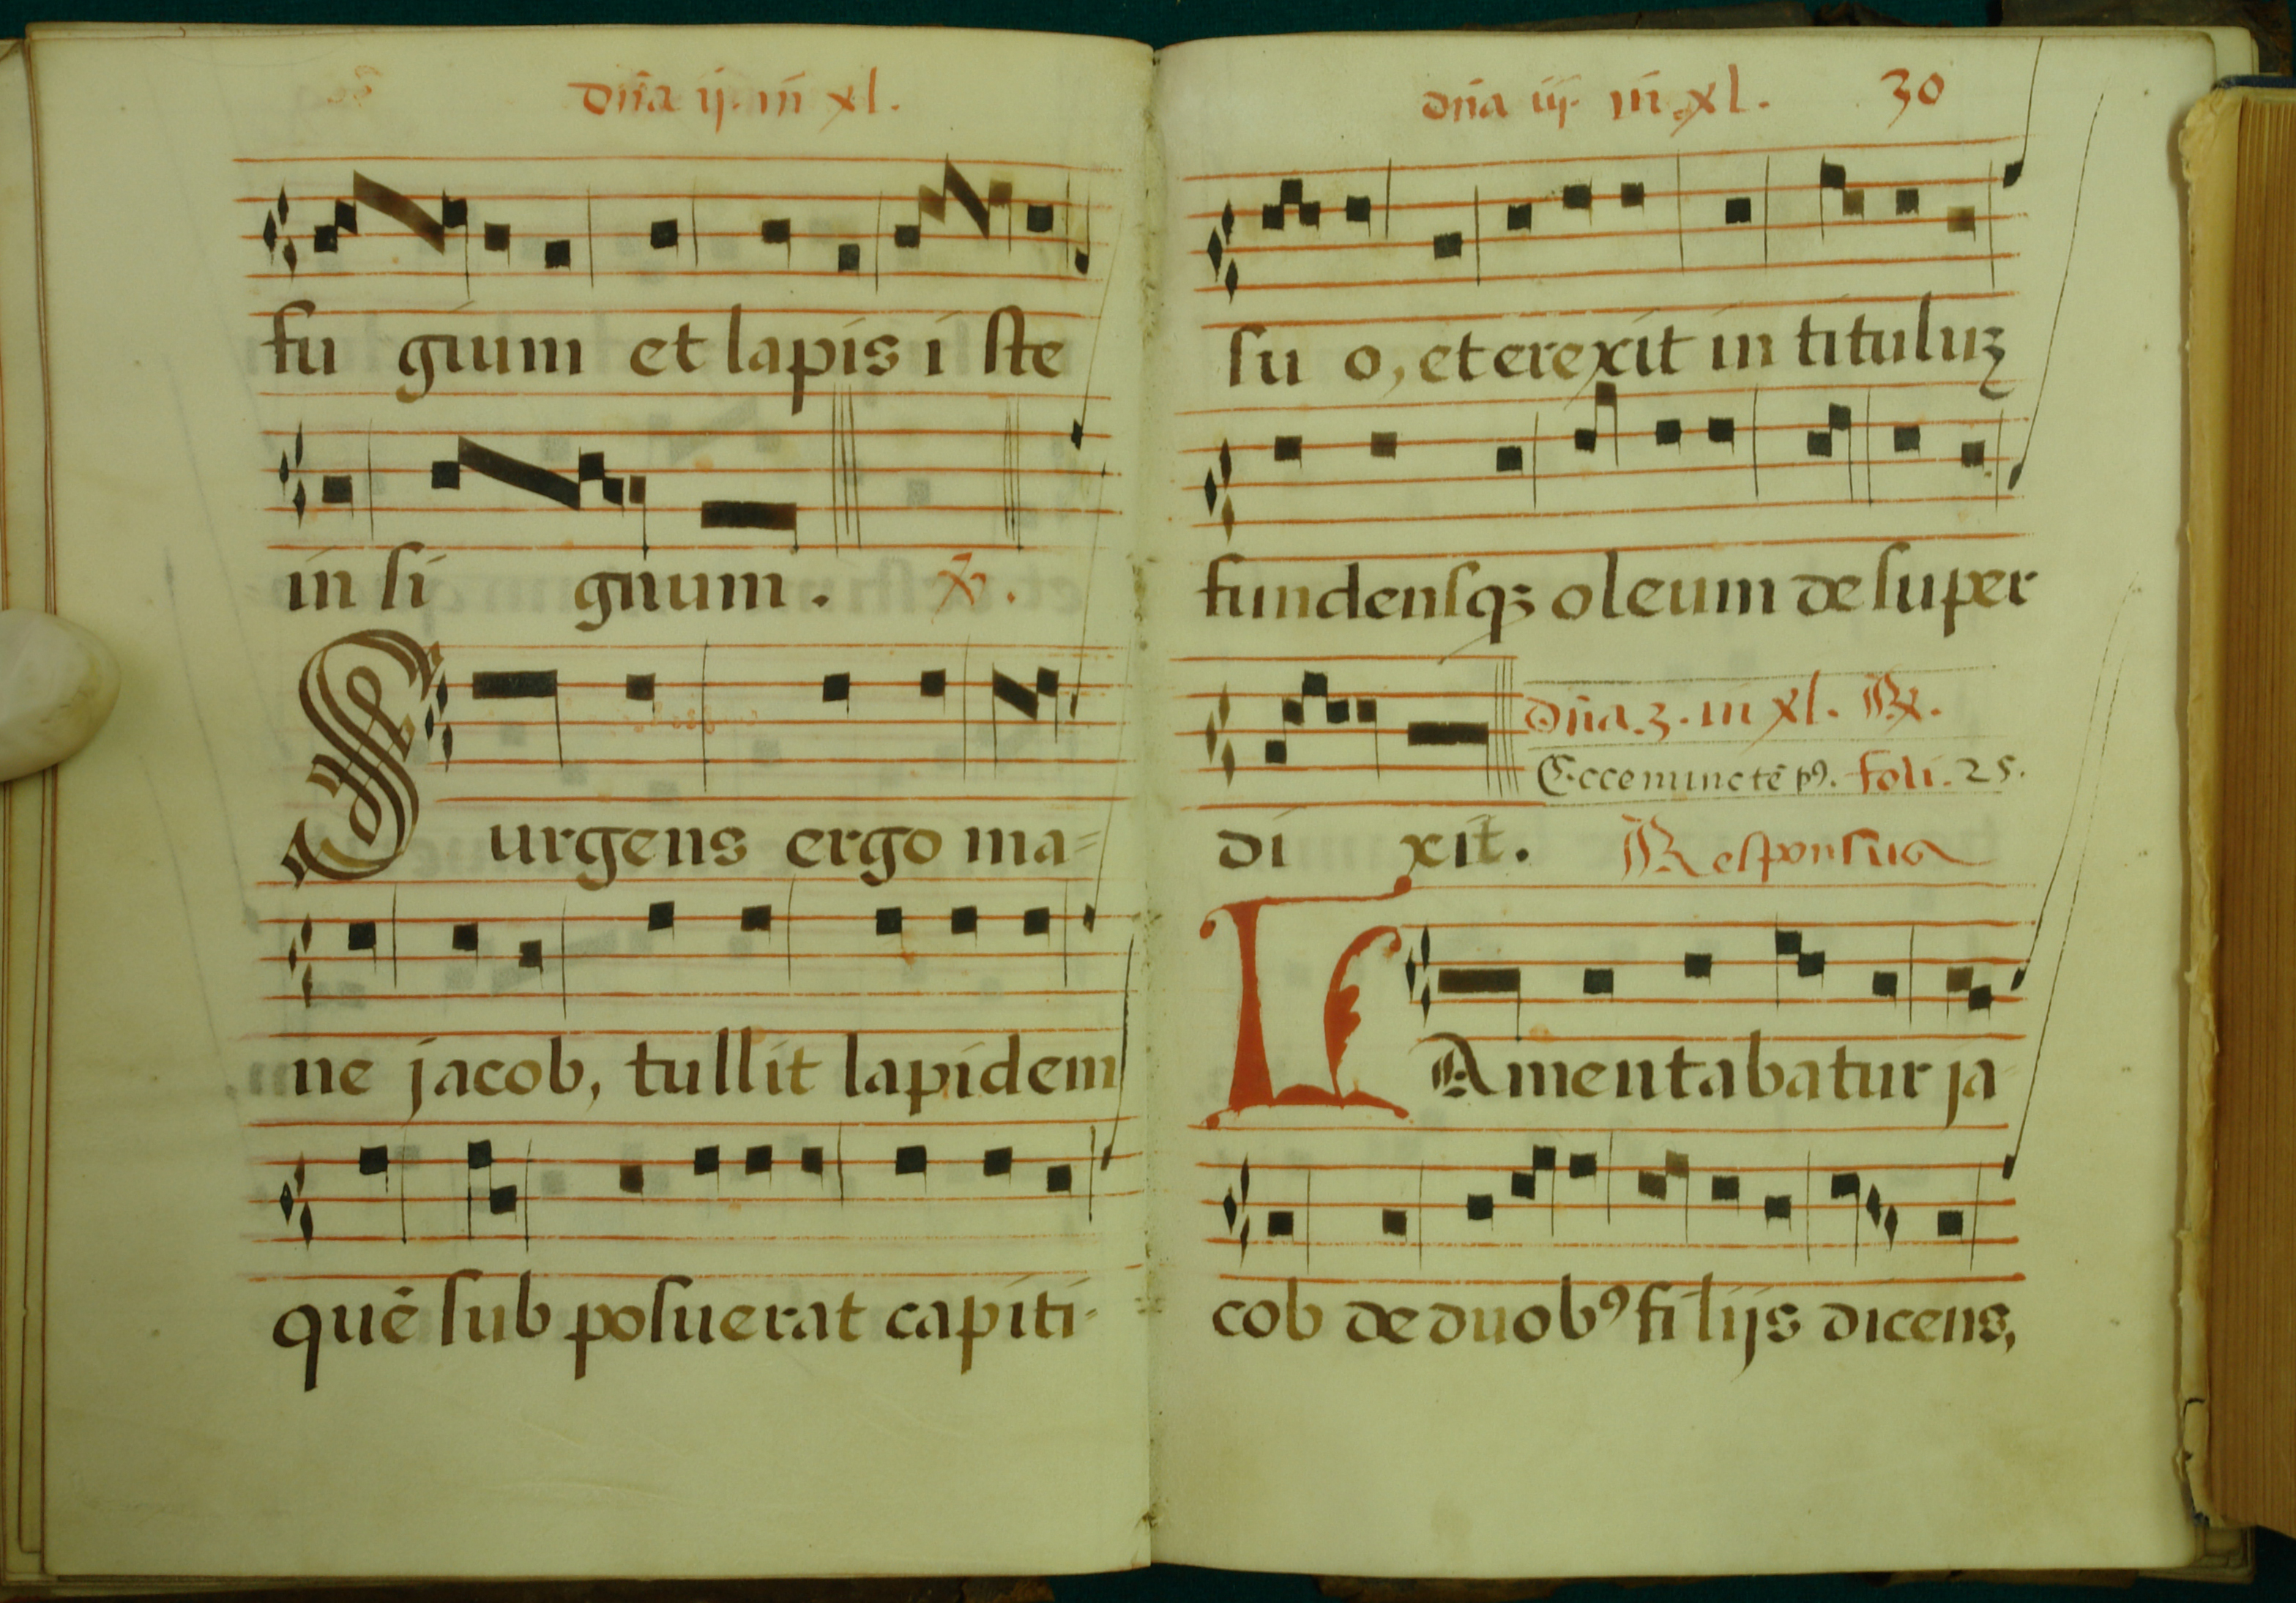 dn̄a ij. in xl.
fu gium et lapis i ste
in si gnum. ℣.
Surgens ergo ma=
ne jacob, tullit lapidem
quē sub posuerat capiti-
dn̄a iij. in xl. 30
su o, et erexit in tituluʒ
fundensqʒ oleum de super
dn̄a. 3. in xl. ℟.
Ecce nunc tē pꝰ. foli. 25.
di xit. Responsua
LAmentabatur ja-
cob de duobꝰ filijs dicens,